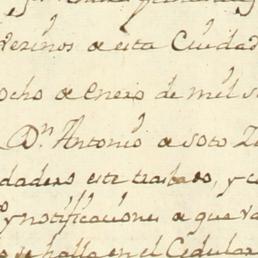 vezinos de esta Ciudad
ocho de Enero de mil s
Dn. Antonio de Soto
dadero este traslado, y c
y notificaciones a que va
se halla en el Cedular